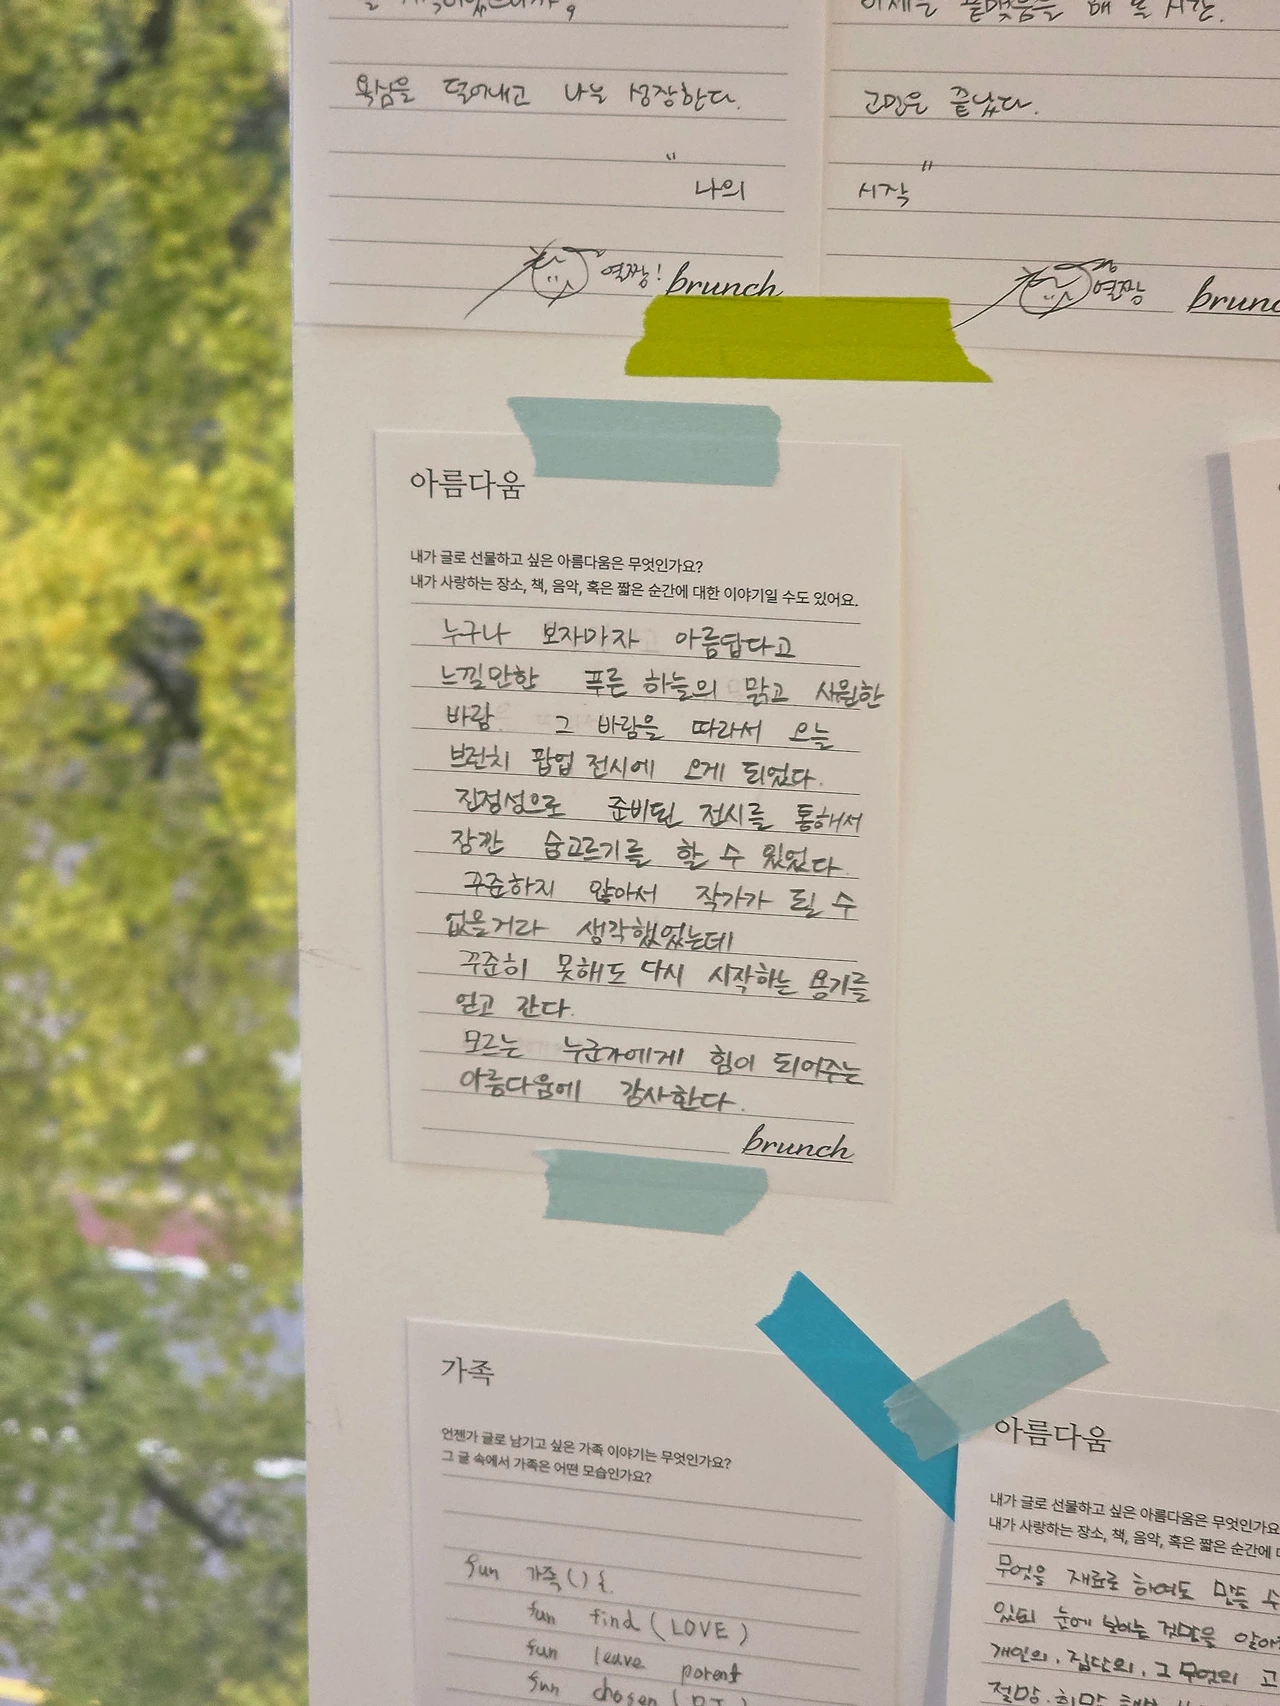 욕심을 덜어내고 나를 성장한다.
"
나의
열짱! brunch
이제는 끝맺음을 해 볼 시간.
고민은 끝났다.
시작 "
열짱 brunc
아름다움
내가 글로 선물하고 싶은 아름다움은 무엇인가요?
내가 사랑하는 장소, 책, 음악, 혹은 짧은 순간에 대한 이야기일 수도 있어요.
누구나 보자마자 아름답다고
느낄만한 푸른 하늘의 맑고 시원한
바람. 그 바람을 따라서 오늘
브런치 팝업 전시에 오게 되었다.
진정성으로 준비된 전시를 통해서
잠깐 숨고르기를 할 수 있었다.
꾸준하지 않아서 작가가 될 수
없을거라 생각했었는데
꾸준히 못해도 다시 시작하는 용기를
얻고 간다.
모르는 누군가에게 힘이 되어주는
아름다움에 감사한다.
brunch
가족
언젠가 글로 남기고 싶은 가족 이야기는 무엇인가요?
그 글 속에서 가족은 어떤 모습인가요?
fun 가족() {
fun find (LOVE)
fun leave parent
fun chosen
아름다움
내가 글로 선물하고 싶은 아름다움은 무엇인가요
내가 사랑하는 장소, 책, 음악, 혹은 짧은 순간에
무엇을 재료로 하여도 만들 수
있되 눈에 보이는 것만을
개인의, 집단의, 그 무엇의 고
절망, 희망,